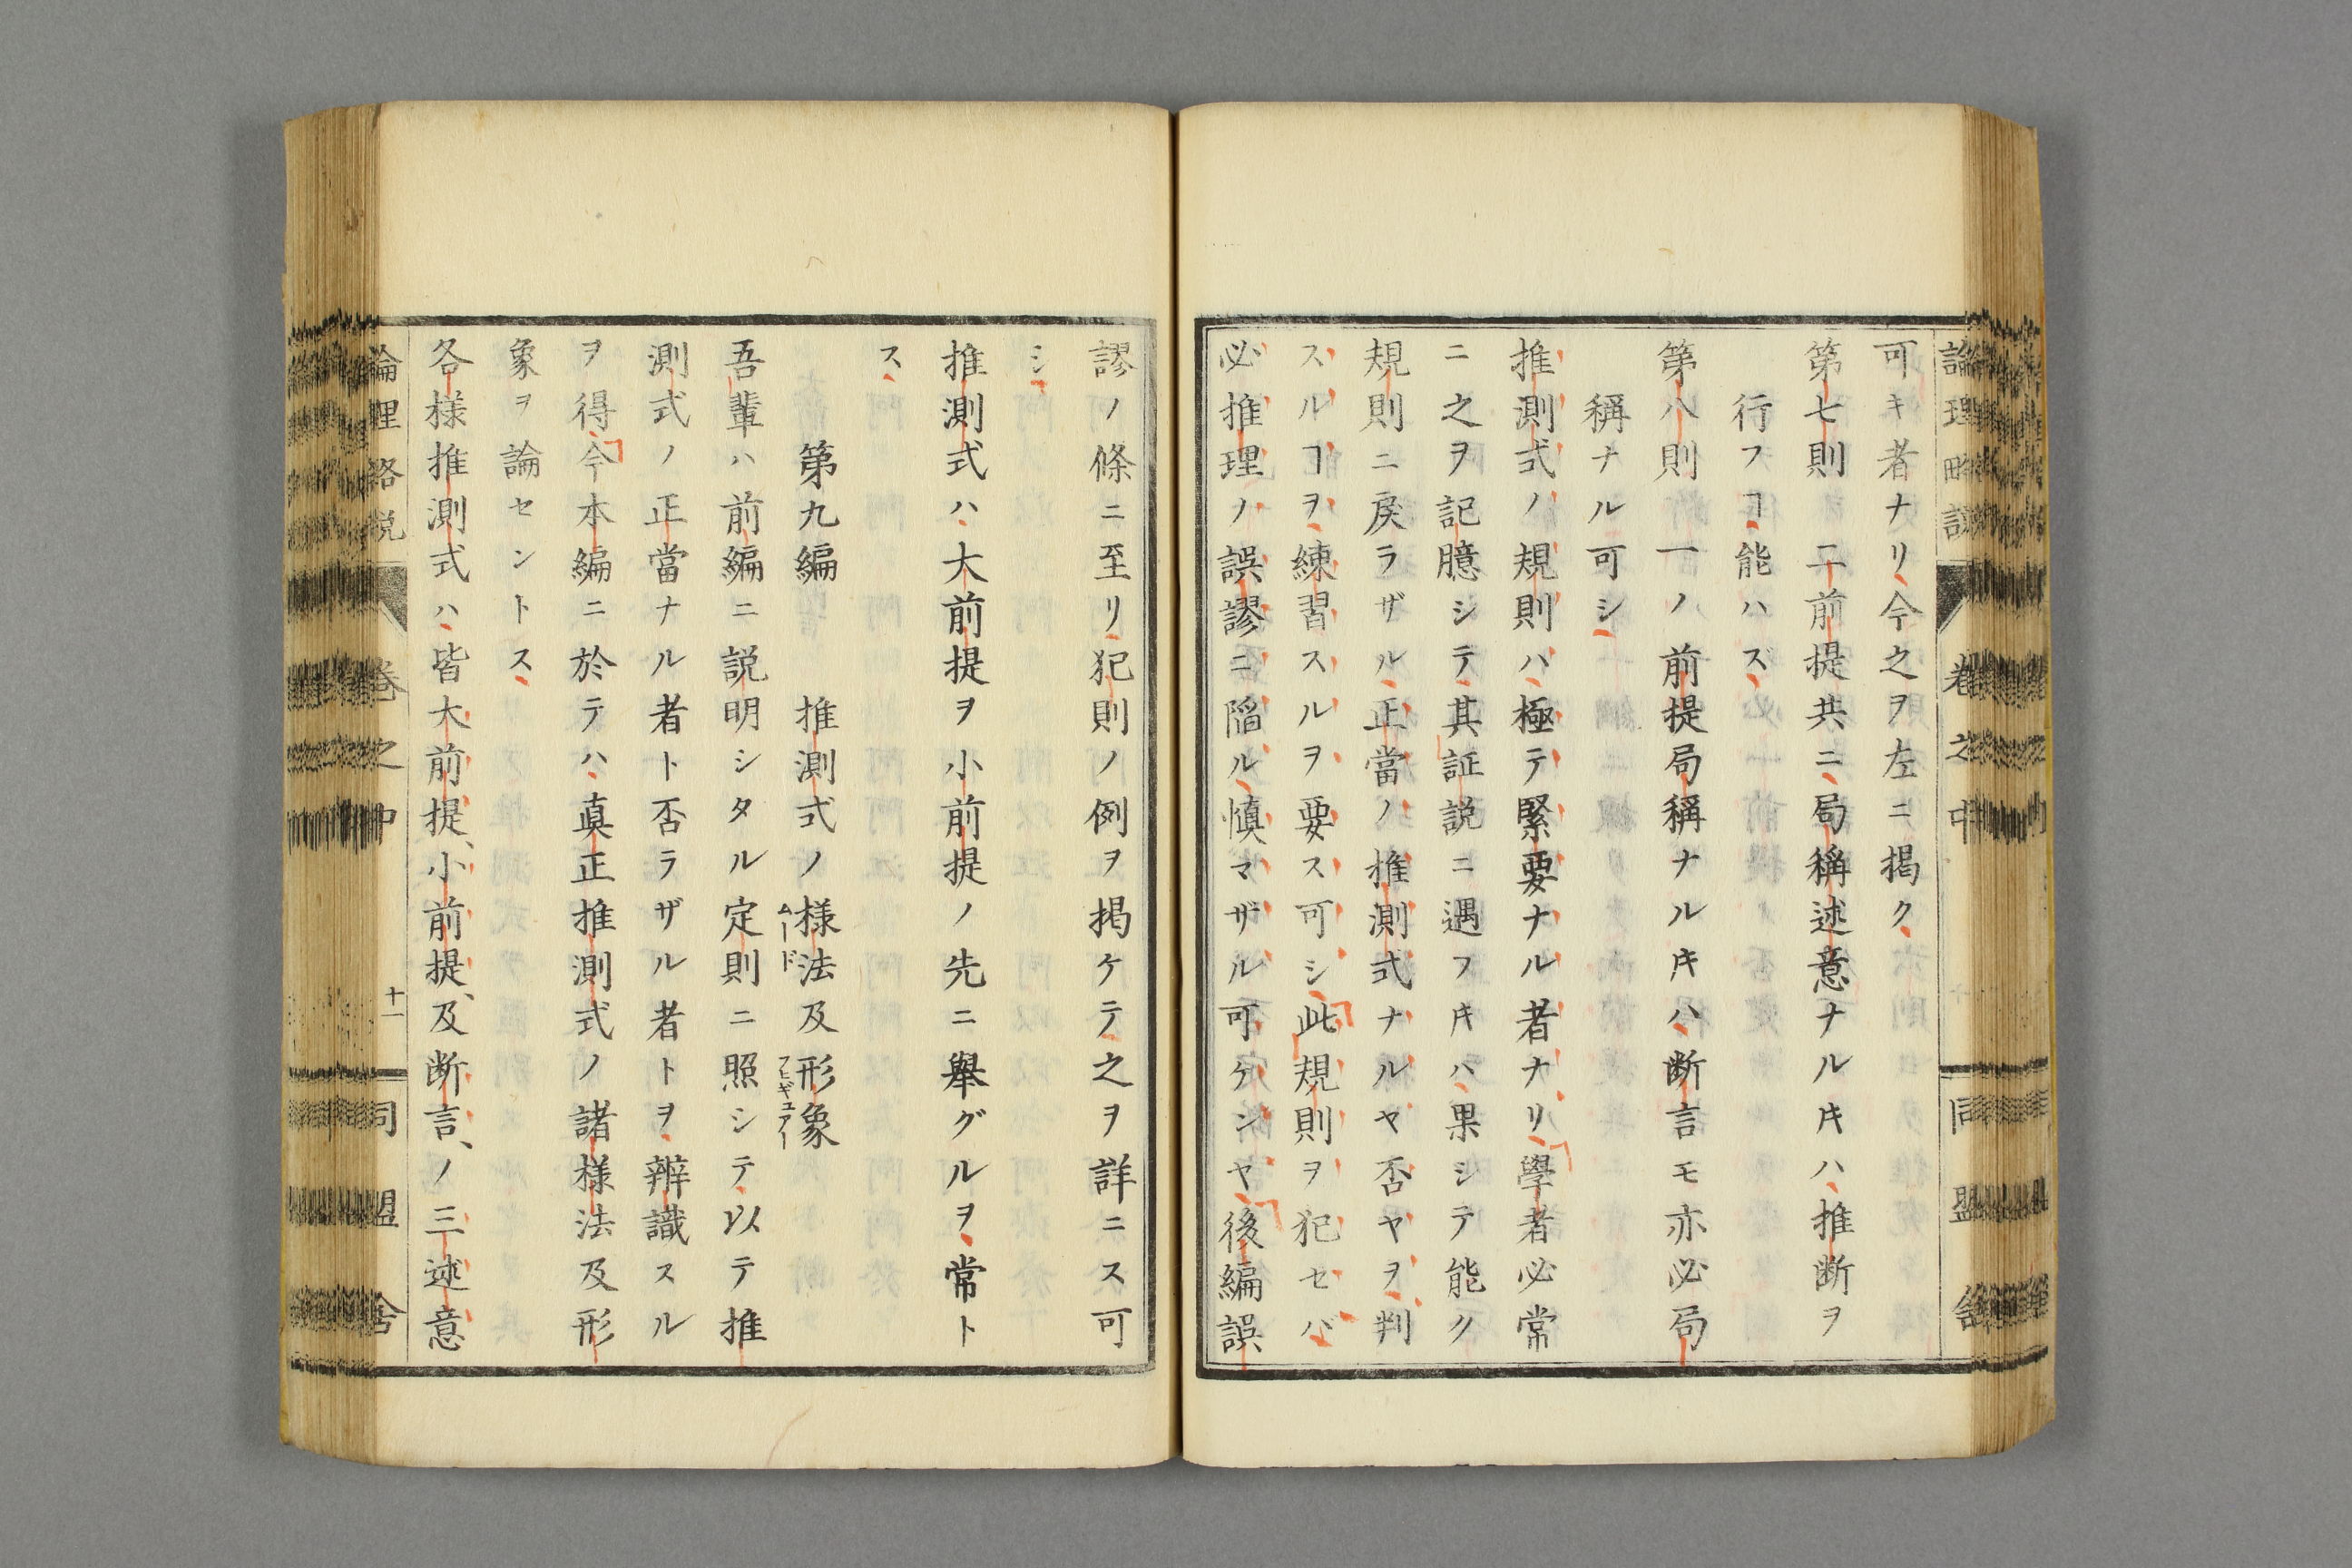 論理略説 卷之中 同盟舎
可キ者ナリ今之ヲ左ニ掲ク
第七則 二前提共ニ局稱述意ナルキハ推断ヲ
行フヿ能ハズ
第八則 一ノ前提局稱ナルキハ断言モ亦必局
稱ナル可シ
推測式ノ規則ハ極テ緊要ナル者ナリ學者必常
ニ之ヲ記臆シテ其証説ニ遇フキハ果シテ能ク
規則ニ戻ラザル正當ノ推測式ナルヤ否ヤヲ判
スルヿヲ練習スルヲ要ス可シ此規則ヲ犯セバ
必推理ノ誤謬ニ陷ル慎マザル可ケンヤ後編誤
謬ノ條ニ至リ犯則ノ例ヲ掲ケテ之ヲ詳ニス可
シ
推測式ハ大前提ヲ小前提ノ先ニ舉グルヲ常ト
ス
第九編 推測式ノ様法及形象
ムード フヒギュアー
吾輩ハ前編ニ説明シタル定則ニ照シテ以テ推
測式ノ正當ナル者ト否ラザル者トヲ辨識スル
ヲ得今本編ニ於テハ真正推測式ノ諸様法及形
象ヲ論セントス
各様推測式ハ皆大前提、小前提、及断言、ノ三述意
論理略説 卷之中 十一 同盟舎